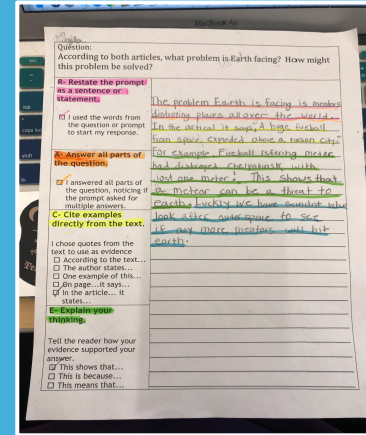 MacBook Air
Question:
According to both articles, what problem is Earth facing? How might
this problem be solved?
R- Restate the prompt
as a sentence or
statement.
I used the words from
the question or prompt
to start my response.
A- Answer all parts of
the question.
I answered all parts of
the question, noticing if
the prompt asked for
multiple answers.
C- Cite examples
directly from the text.
I chose quotes from the
text to use as evidence
According to the text...
The author states...
One example of this...
On page...it says...
In the article... it
states...
E- Explain your
thinking.
Tell the reader how your
evidence supported your
answer.
This shows that...
This is because...
This means that...
The problem Earth is facing is
places all over the world.
In the it says, "A huge fireball
from space, above a city."
For example, Fireball meteor
had with
just one meteor! This shows that
a meteor can be a threat to
earth. we have
look after to see
if any more will hit
earth.
tab
caps lock
shift
fn